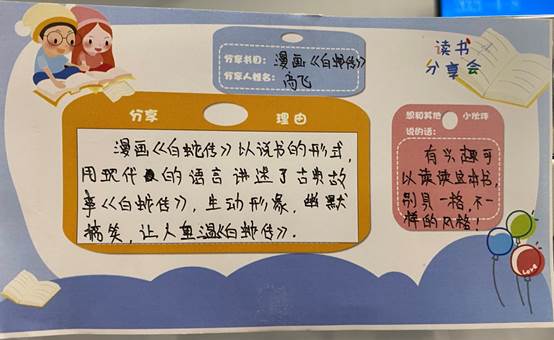 读书
分享会
分享书目：漫画《白蛇传》
分享人姓名：高飞
分享 理由
漫画《白蛇传》以说书的形式，
用现代的语言讲述了古典故
事《白蛇传》，生动形象，幽默
搞笑，让人重温《白蛇传》.
想和其他小伙伴
说的话：
有兴趣可
以读读这本书，
别具一格，不一
样的风格！
Love